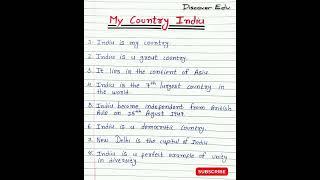 Discover Edu
My Country India
1. India is my country.
2. India is a great country.
3. It lies in the contient of Asia.
4. India is the 7th largest country in
the world.
5. India became independent from British
Rule on 15th August 1947.
6. India is a democratic country.
7. New Delhi is the capital of India.
8. India is a perfect example of unity
in diversity.
SUBSCRIBE